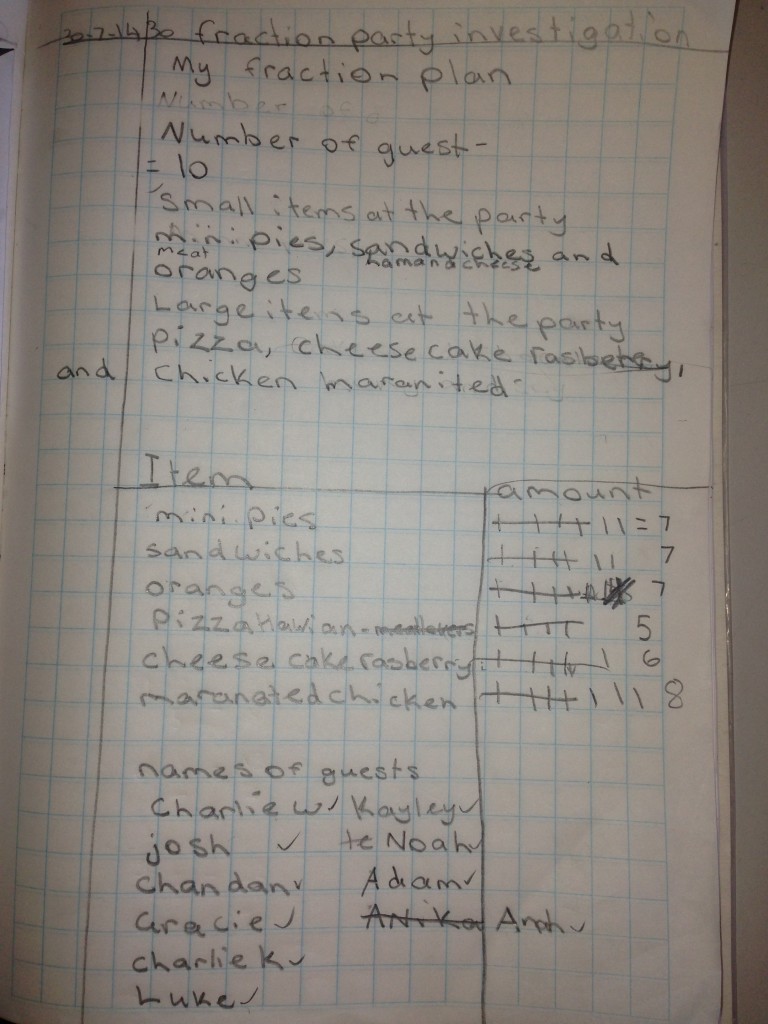 30-7-14 30 fraction party investigation
My fraction plan
Number of
Number of guest-
= 10
Small items at the party
mini pies, sandwiches and
meat ham and cheese
oranges
Large items at the party
pizza, cheese cake rasberry,
and chicken maranited
Item amount
mini pies = 7
sandwiches 7
oranges 7
Pizza Hawian - meatlovers 5
cheese cake rasberry 6
maranated chicken 8
names of guests
Charlie w ✓ Kayley ✓
josh ✓ te Noah ✓
Chandan ✓ Adam ✓
Gracie ✓ Anika ✓
charlie K ✓
Luke ✓